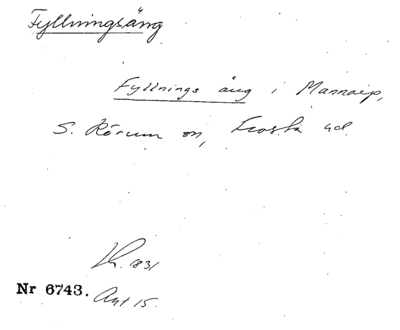 Fyllningsäng
Fyllnings äng i Mannarp,
S. Rörum sn, Frosta hd.
Lh. 1831
Nr 6743. Akt 15.